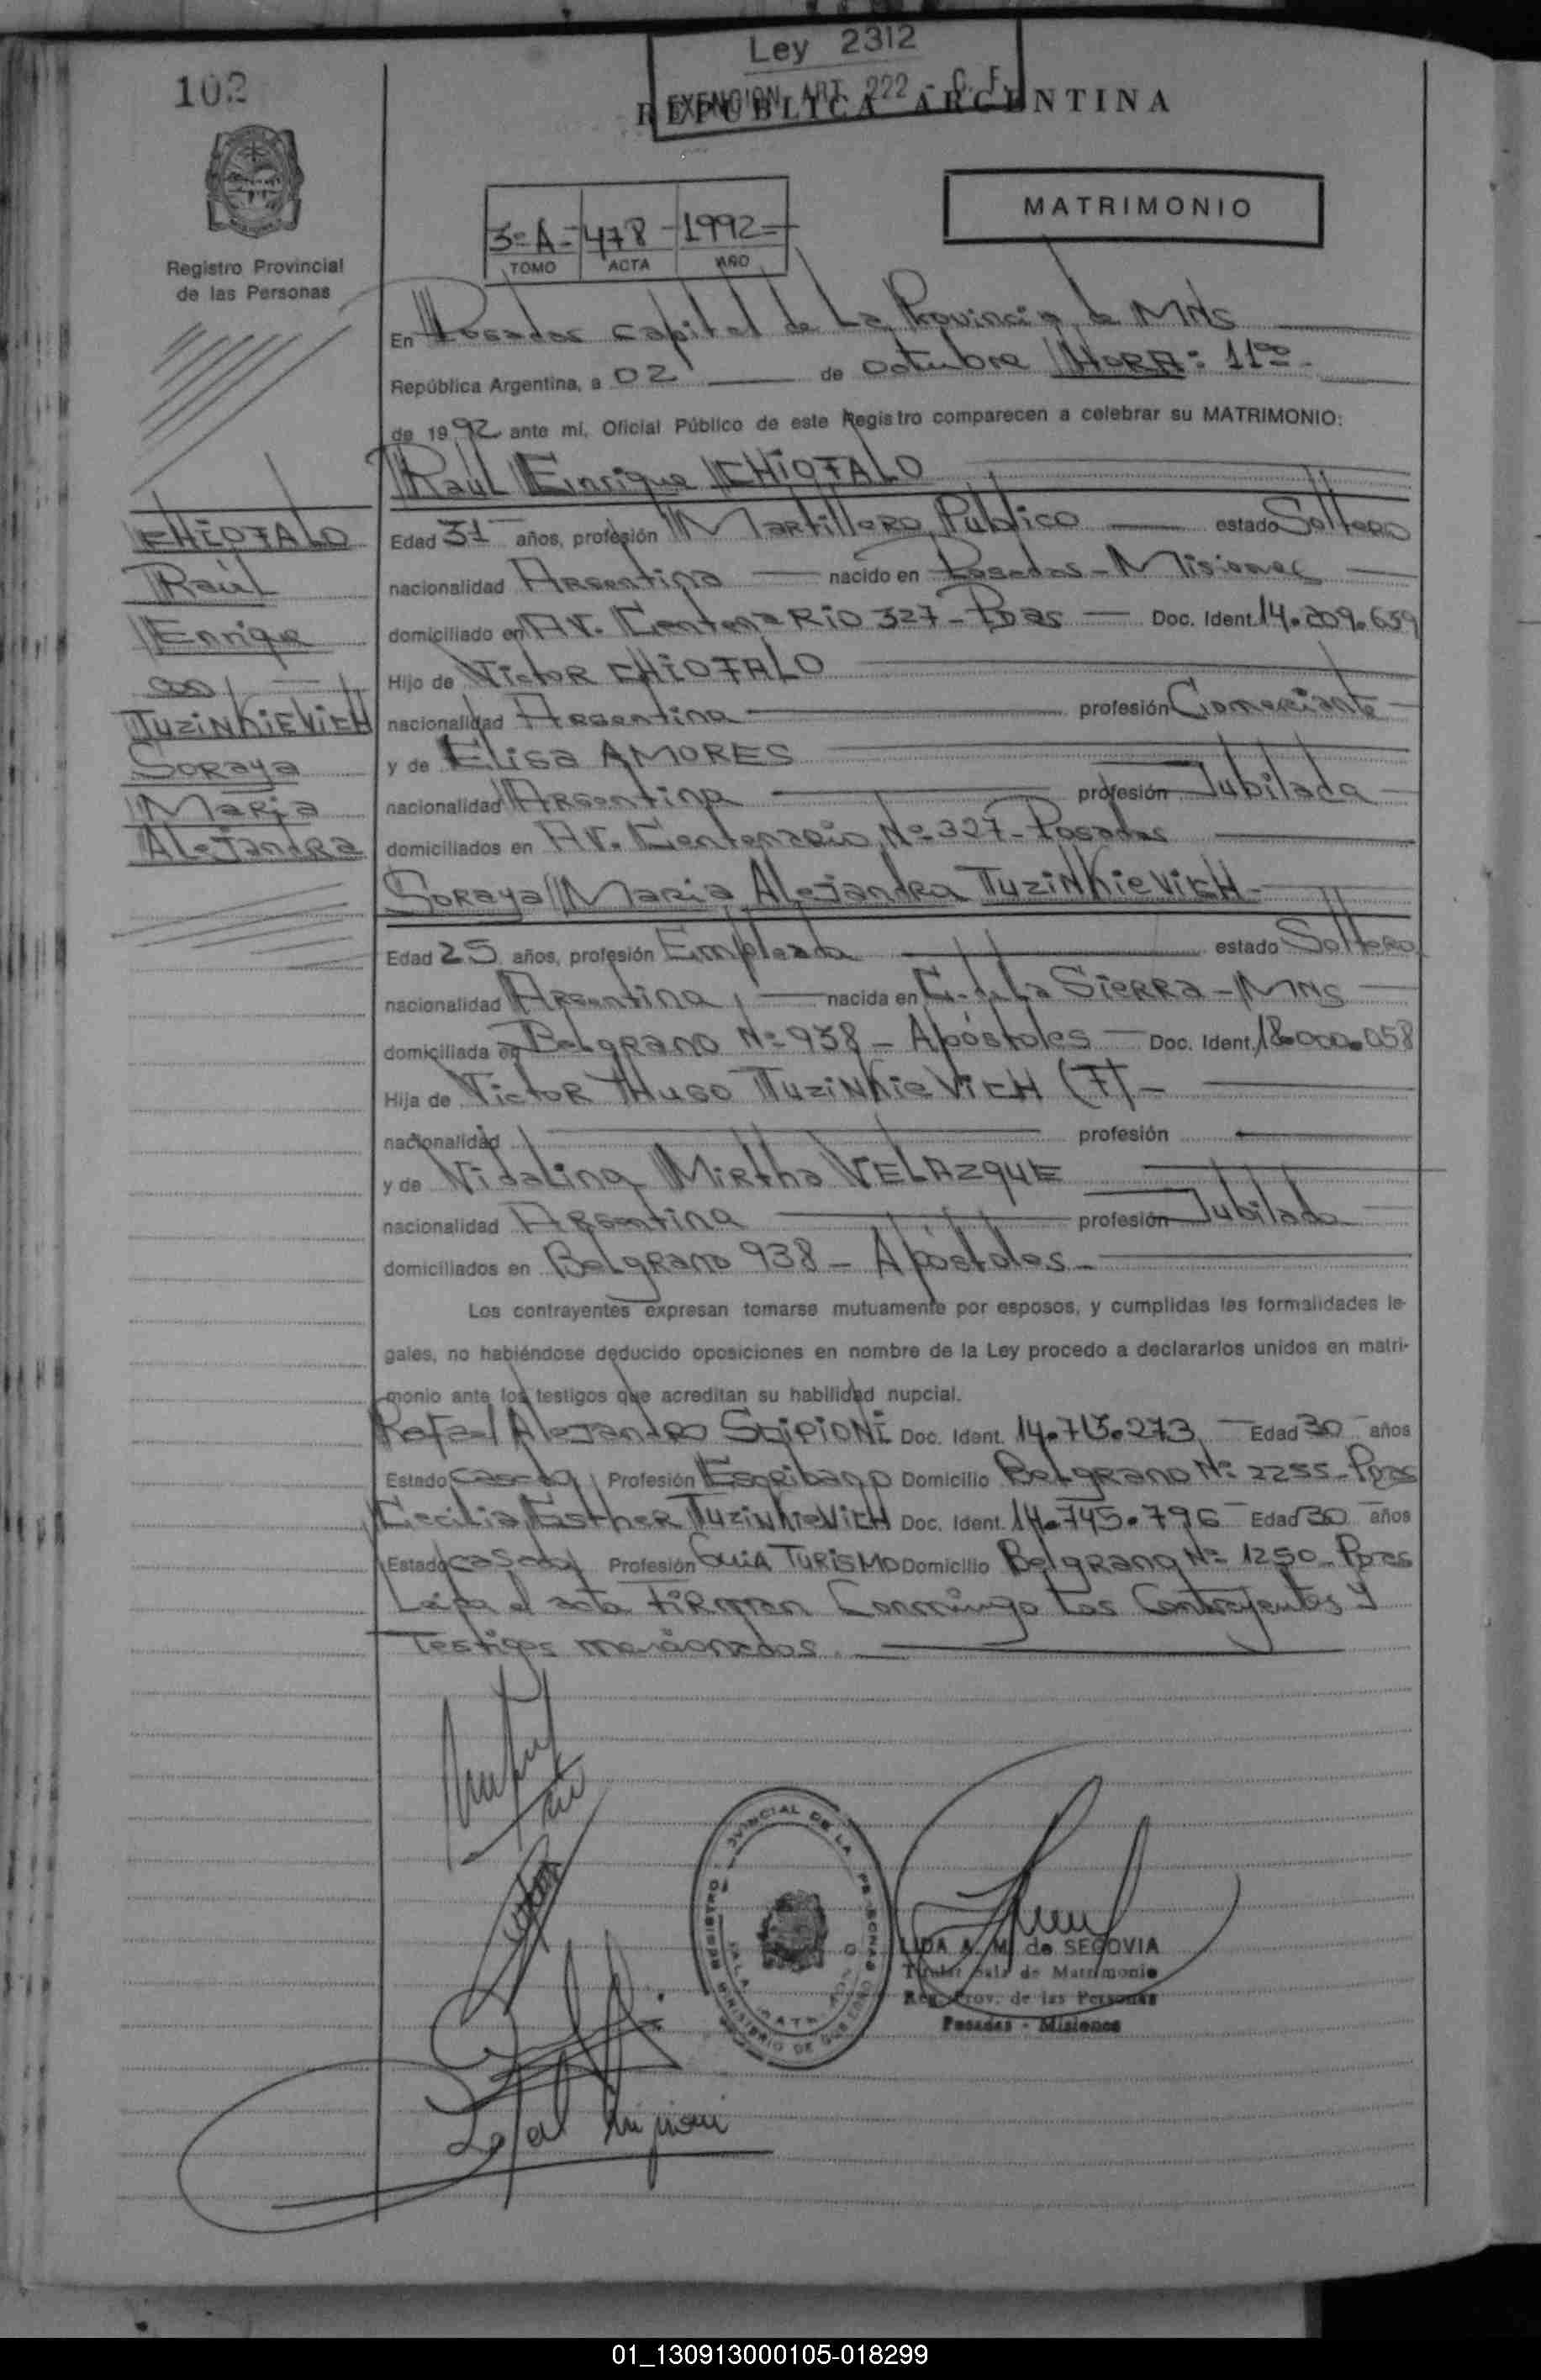 102
Ley 2312
EXENCION ART. 222 - C. F.
REPUBLICA ARGENTINA
MATRIMONIO
3º A - 478 - 1992
TOMO ACTA AÑO
Registro Provincial
de las Personas
En Posadas capital de La Provincia de MNS
República Argentina, a 02 de octubre HORA: 11⁰⁰
de 1992 ante mí, Oficial Público de este Registro comparecen a celebrar su MATRIMONIO:
Raúl Enrique CHIOFALO
CHIOFALO
Raúl
Enrique
con
TUZINKIEVICH
Soraya
María
Alejandra
Edad 31 años, profesión Martillero Público estado Soltero
nacionalidad Argentina nacido en Posadas - Misiones
domiciliado en AV. Centenario 327 - Pdas Doc. Ident. 14.209.659
Hijo de Victor CHIOFALO
nacionalidad Argentina profesión Comerciante
y de Elisa AMORES
nacionalidad Argentina profesión Jubilada
domiciliados en AV. Centenario Nº 327 - Posadas
Soraya María Alejandra TUZINKIEVICH
Edad 25 años, profesión Empleada estado Soltera
nacionalidad Argentina nacida en C. de La Sierra - MNS
domiciliada en Belgrano Nº 938 - Apóstoles Doc. Ident. 18.000.058
Hija de Victor Hugo TUZINKIEVICH (F) -
nacionalidad profesión
y de Vidalina Mirtha VELAZQUE
nacionalidad Argentina profesión Jubilada
domiciliados en Belgrano 938 - Apóstoles -
Los contrayentes expresan tomarse mutuamente por esposos, y cumplidas las formalidades le-
gales, no habiéndose deducido oposiciones en nombre de la Ley procedo a declararlos unidos en matri-
monio ante los testigos que acreditan su habilidad nupcial.
Rafael Alejandro SCIPIONI Doc. Ident. 14.713.273 Edad 30 años
Estado casado Profesión Escribano Domicilio Belgrano Nº 2255 - Pdas
Cecilia Esther TUZINKIEVICH Doc. Ident. 14.745.796 Edad 30 años
Estado casada Profesión GUIA TURISMO Domicilio Belgrano Nº 1250 - Pdas
Leída el acta firman Conmigo Los Contrayentes y
Testigos mencionados.
LIDA A. M. de SEGOVIA
Titular Sala de Matrimonio
Reg. Prov. de las Personas
Posadas - Misiones
01_130913000105-018299